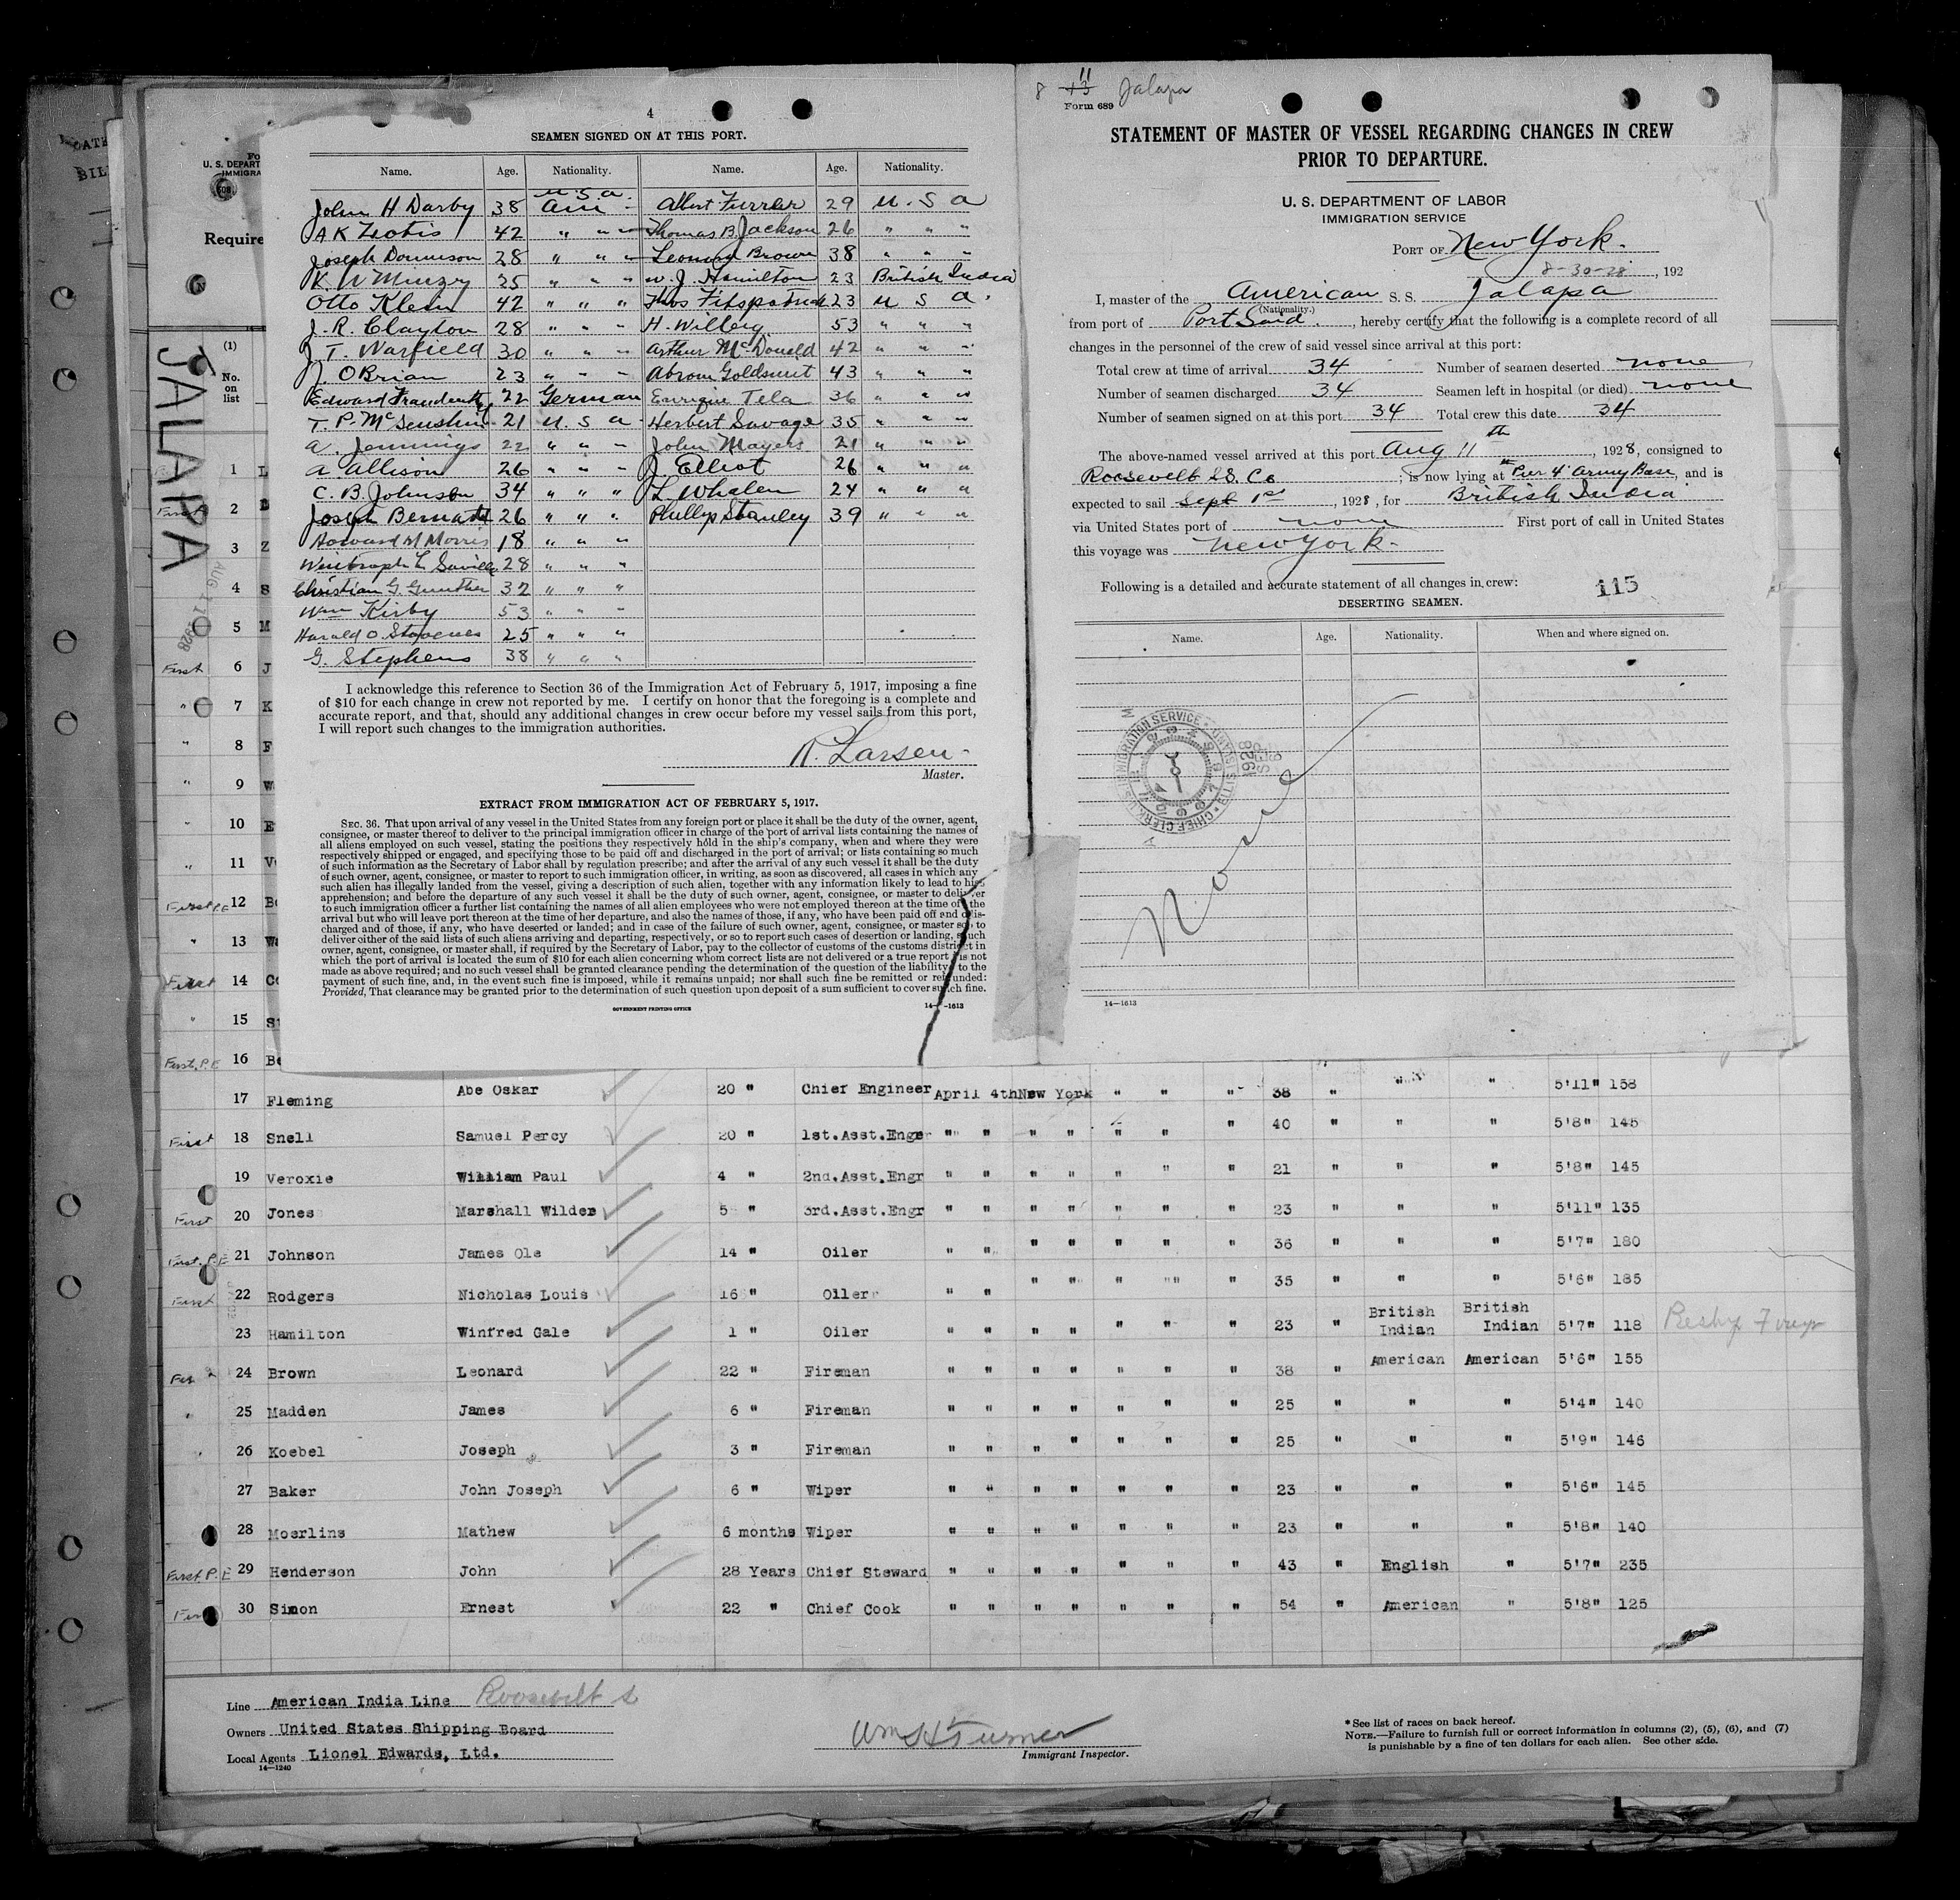 4
SEAMEN SIGNED ON AT THIS PORT.
Name. Age. Nationality. Name. Age. Nationality.
John H Darby 38 U.S.A. Am Albert Furrer 29 U. S A
A K 42 " " " Thomas B. Jackson 26 " " "
Joseph 28 " " " Leonard Brown 38 " " "
K. W 25 " " " W. J. Hamilton 23 British India
Otto Klein 42 " " " Thos Fitzpatrick 23 U S A.
J. R. Clayton 28 " " " H. Willberg 53 " " "
J. T. Warfield 30 " " " Arthur McDonald 42 " " "
J. OBrian 23 " " " Abrom 43 " " "
Edward 22 German Enrique Tela 36 " " "
T. P. 21 U. S A Herbert Savage 35 " " "
A. Jennings 22 " " " John Mayers 21 " " "
A. Allison 26 " " " J. Elliot 26 " " "
C. B. Johnson 34 " " " L. Whalen 24 " " "
Joseph 26 " " " Phillip Stanley 39 " " "
Howard M Morris 18 " " "
L. 28 " " "
Christian G. Gunther 32 " " "
Wm Kirby 53 " " "
Harald O. 25 " " "
G. Stephens 38 " " "
I acknowledge this reference to Section 36 of the Immigration Act of February 5, 1917, imposing a fine
of $10 for each change in crew not reported by me. I certify on honor that the foregoing is a complete and
accurate report, and that, should any additional changes in crew occur before my vessel sails from this port,
I will report such changes to the immigration authorities.
R. Larsen
Master.
EXTRACT FROM IMMIGRATION ACT OF FEBRUARY 5, 1917.
SEC. 36. That upon arrival of any vessel in the United States from any foreign port or place it shall be the duty of the owner, agent,
consignee, or master thereof to deliver to the principal immigration officer in charge of the port of arrival lists containing the names of
all aliens employed on such vessel, stating the positions they respectively hold in the ship's company, when and where they were
respectively shipped or engaged, and specifying those to be paid off and discharged in the port of arrival; or lists containing so much
of such information as the Secretary of Labor shall by regulation prescribe; and after the arrival of any such vessel it shall be the duty
of such owner, agent, consignee, or master to report to such immigration officer, in writing, as soon as discovered, all cases in which any
such alien has illegally landed from the vessel, giving a description of such alien, together with any information likely to lead to his
apprehension; and before the departure of any such vessel it shall be the duty of such owner, agent, consignee, or master to deliver
to such immigration officer a further list containing the names of all alien employees who were not employed thereon at the time of the
arrival but who will leave port thereon at the time of her departure, and also the names of those, if any, who have been paid off and dis-
charged and of those, if any, who have deserted or landed; and in case of the failure of such owner, agent, consignee, or master so to
deliver either of the said lists of such aliens arriving and departing, respectively, or so to report such cases of desertion or landing, such
owner, agent, consignee, or master shall, if required by the Secretary of Labor, pay to the collector of customs of the customs district in
which the port of arrival is located the sum of $10 for each alien concerning whom correct lists are not delivered or a true report is not
made as above required; and no such vessel shall be granted clearance pending the determination of the question of the liability to the
payment of such fine, and, in the event such fine is imposed, while it remains unpaid; nor shall such fine be remitted or refunded:
Provided, That clearance may be granted prior to the determination of such question upon deposit of a sum sufficient to cover such fine.
GOVERNMENT PRINTING OFFICE 14—1613
8 13 11 Jalapa
Form 689
STATEMENT OF MASTER OF VESSEL REGARDING CHANGES IN CREW
PRIOR TO DEPARTURE.
U. S. DEPARTMENT OF LABOR
IMMIGRATION SERVICE
PORT OF New York.
8-30-28, 192
I, master of the American S. S. Jalapa
(Nationality.)
from port of Port Said., hereby certify that the following is a complete record of all
changes in the personnel of the crew of said vessel since arrival at this port:
Total crew at time of arrival 34 Number of seamen deserted none
Number of seamen discharged 34 Seamen left in hospital (or died) none
Number of seamen signed on at this port 34 Total crew this date 34
The above-named vessel arrived at this port Aug 11th, 1928, consigned to
Roosevelt SS. Co; is now lying at Pier 4 Army Base, and is
expected to sail Sept 1st, 1928, for British India
via United States port of none First port of call in United States
this voyage was New York.
Following is a detailed and accurate statement of all changes in crew:
115
DESERTING SEAMEN.
Name. Age. Nationality. When and where signed on.
None
CHIEF CLERK U.S. IMMIGRATION SERVICE ELLIS ISLAND, N.Y.
1928
14—1613
U. S. DEPART
IMMIGRA
Require
JALAPA
AUG 11 1928
(1)
No.
on
list
1 L
First 2
3 Z
4 S
5 M
First 6 J
" 7 K
" 8 F
" 9 W
" 10 E
" 11 V
First P.E 12
" 13
First 14
" 15
First, P.E 16
17 Fleming Abe Oskar 20 " Chief Engineer April 4th New York " " " 38 " " " 5'11" 158
First 18 Snell Samuel Percy 20 " 1st.Asst.Engr " " " " " " " 40 " " " 5'8" 145
19 Veroxie William Paul 4 " 2nd.Asst.Engr " " " " " " " 21 " " " 5'8" 145
First 20 Jones Marshall Wilder 5 " 3rd.Asst.Engr " " " " " " " 23 " " " 5'11" 135
First. P.E 21 Johnson James Ole 14 " Oiler " " " " " " " 36 " " " 5'7" 180
First 22 Rodgers Nicholas Louis 16 " Oiler " " " " " " " 35 " " " 5'6" 185
23 Hamilton Winfred Gale 1 " Oiler " " " " " " " 23 " British Indian British Indian 5'7" 118
24 Brown Leonard 22 " Fireman " " " " " " " 38 " American American 5'6" 155
" 25 Madden James 6 " Fireman " " " " " " " 25 " " " 5'4" 140
" 26 Koebel Joseph 3 " Fireman " " " " " " " 25 " " " 5'9" 146
27 Baker John Joseph 6 " Wiper " " " " " " " 23 " " " 5'6" 145
28 Moerlins Mathew 6 months Wiper " " " " " " " 23 " " " 5'8" 140
First, P.E 29 Henderson John 28 Years Chief Steward " " " " " " " 43 " English " 5'7" 235
30 Simon Ernest 22 " Chief Cook " " " " " " " 54 " American " 5'8" 125
Line American India Line Roosevelt
Owners United States Shipping Board
Local Agents Lionel Edwards, Ltd.
14—1240
Wm H Turner
Immigrant Inspector.
*See list of races on back hereof.
NOTE.—Failure to furnish full or correct information in columns (2), (5), (6), and (7)
is punishable by a fine of ten dollars for each alien. See other side.